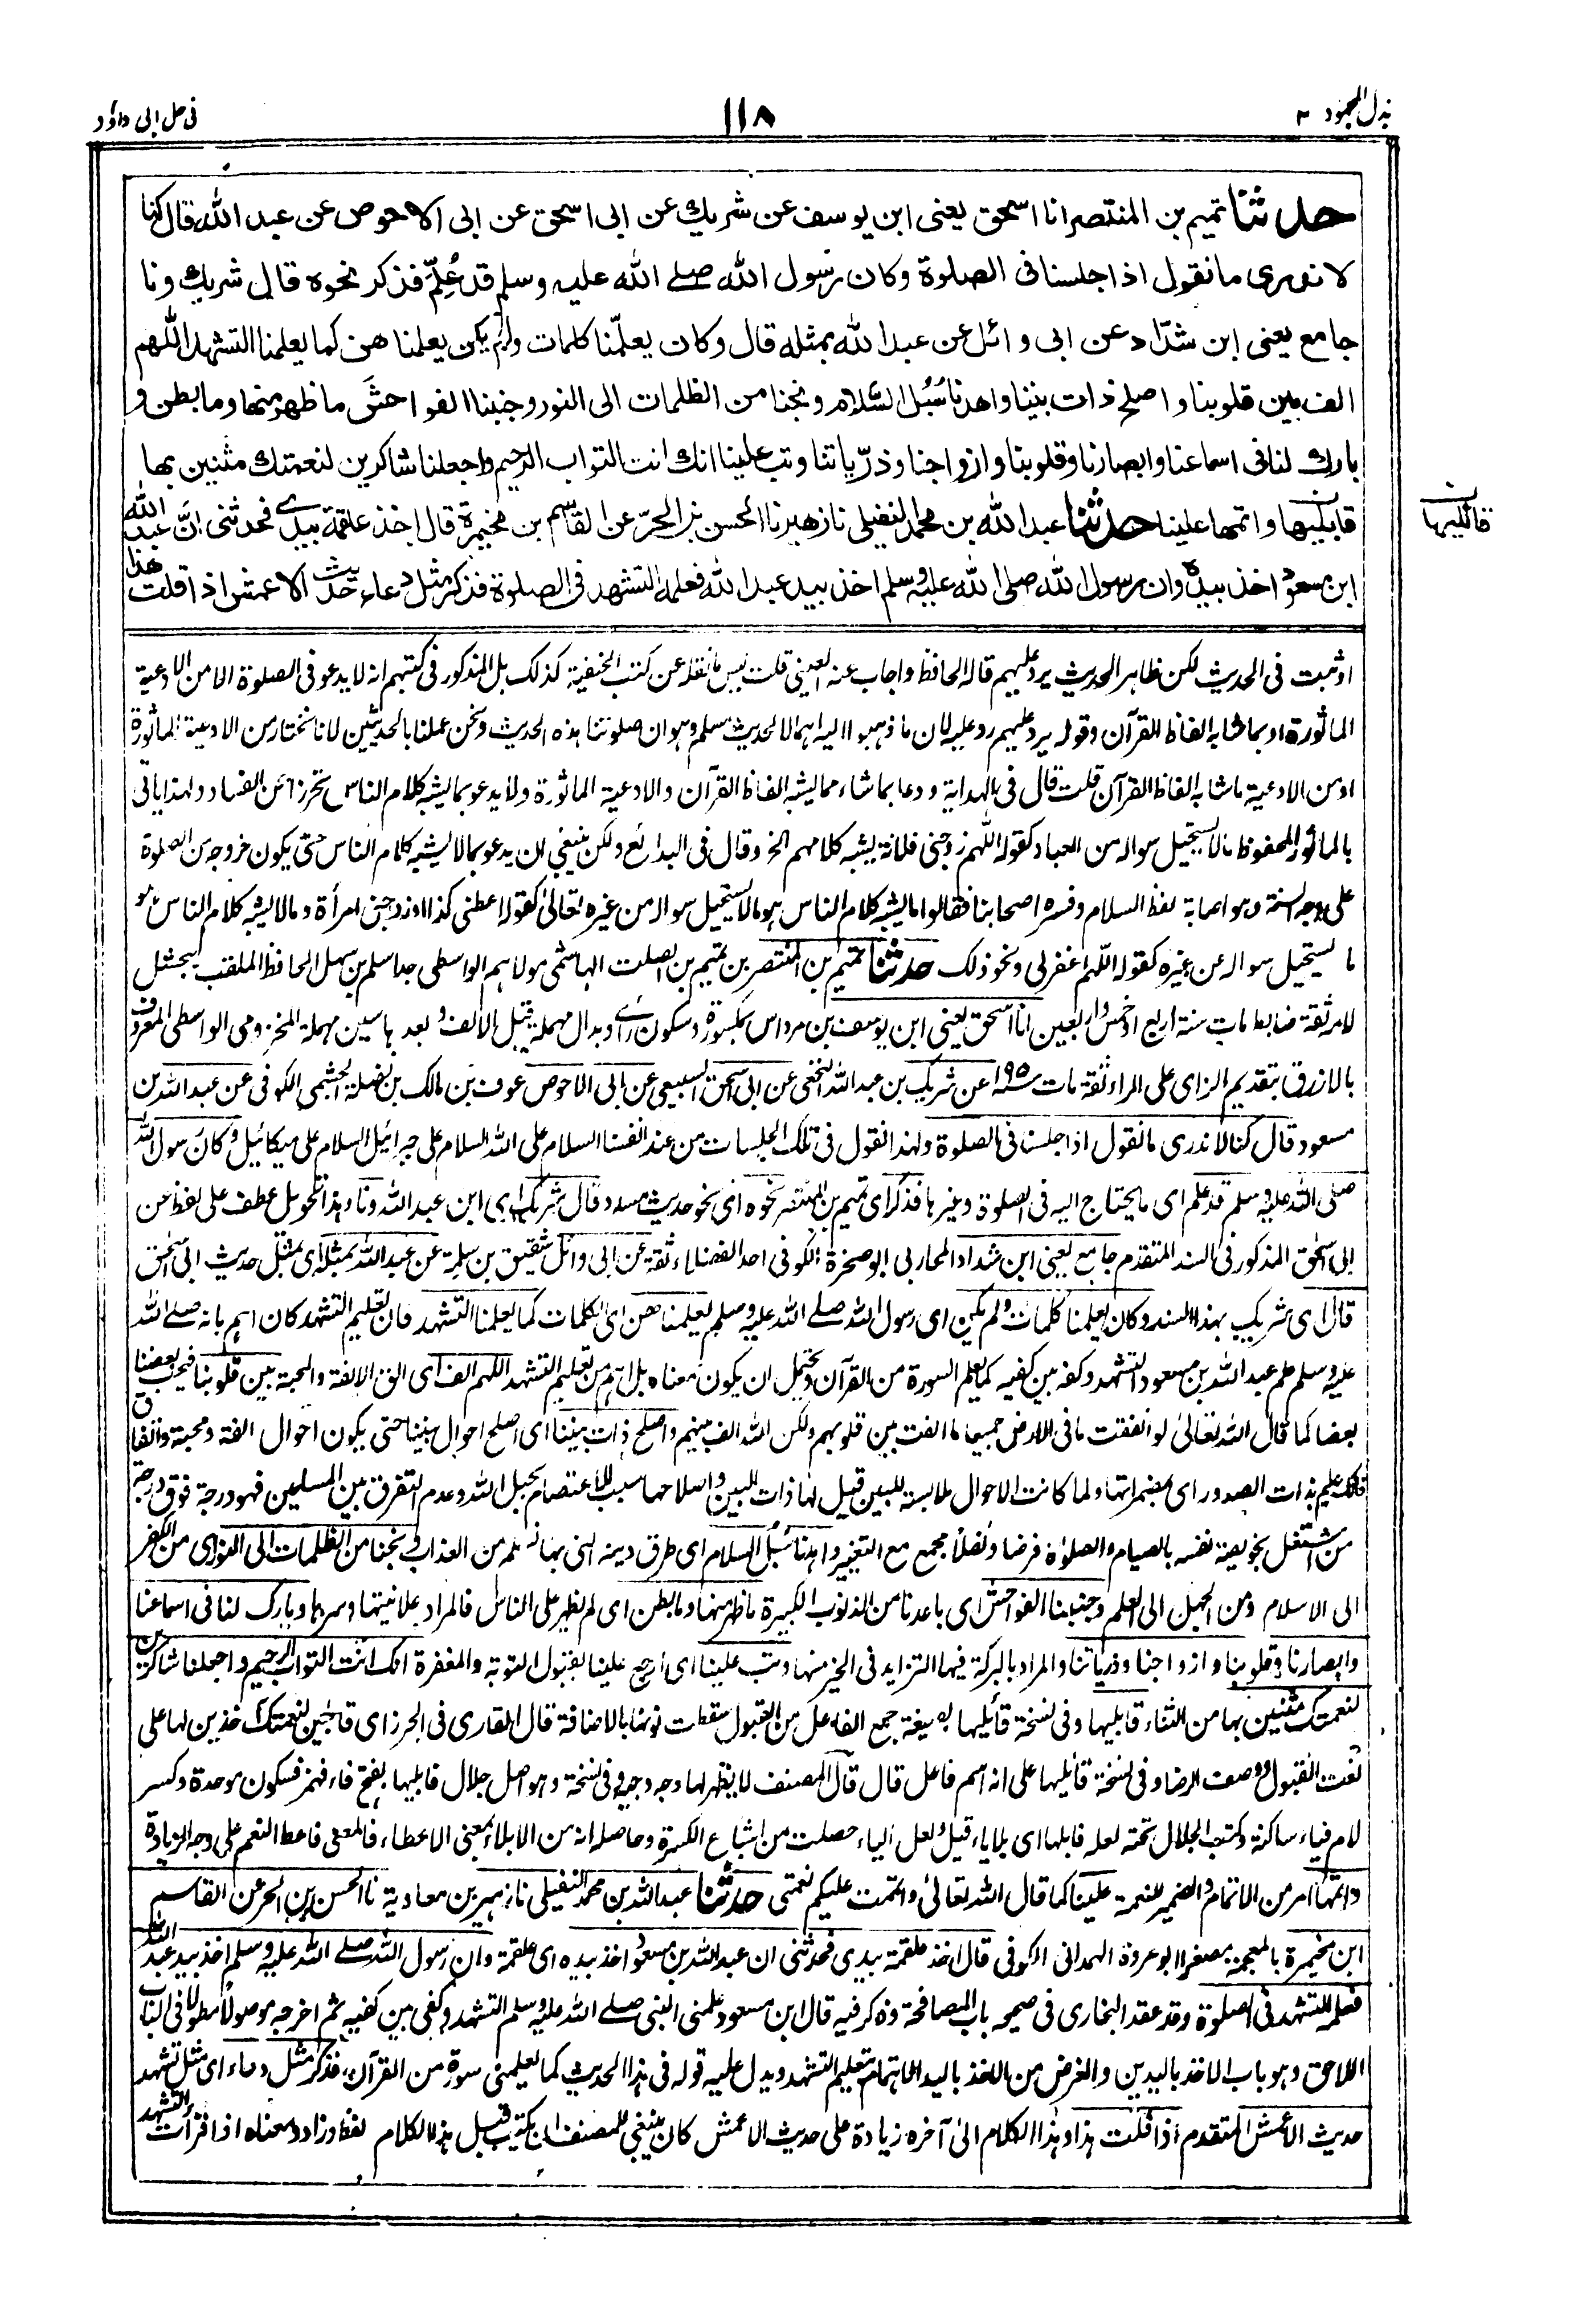 بذل المجهود ٢
١١٨
فى حل ابى داؤد
حدثنا تميم بن المنتصر انا اسحق يعنى ابن يوسف عن شريك عن ابى اسحق عن ابى الاحوص عن عبد الله قال كنا
لا ندرى ما نقول اذا جلسنا فى الصلوة وكان رسول الله صلے الله عليه وسلم قد عُلِّمَ فذكر نحوه قال شريك ونا
جامع يعنى ابن شدّاد عن ابى وائل عن عبد الله بمثله قال وكان يعلّمنا كلمات ولم يكن يعلمناهن كما يعلمنا التشهد اللهم
الف بين قلوبنا واصلح ذات بيننا واهدنا سُبُل السَّلام ونجنا من الظلمات الى النور وجنبنا الفواحشَ ما ظهر منها وما بطن و
بارك لنا فى اسماعنا وابصارنا وقلوبنا وازواجنا وذرّياتنا وتب علينا انك انت التواب الرحيم واجعلنا شاكرين لنعمتك مثنين بها
قابليها واتمها علينا حدثنا عبد الله بن محمد النفيلى نا زهير نا الحسن بن الحرّ عن القاسم بن مخيمرة قال اخذ علقمة بيدے فحدثنى انَّ عبد الله
ابن مسعود اخذ بيده وان رسول الله صلى الله عليه وسلم اخذ بيد عبد الله فعلمه التشهد فى الصلوة فذكر مثل دعاء حديث الاعمش اذا قلت هذا
اثبت فى الحديث لكن ظاهر الحديث يرد عليهم قاله الحافظ واجاب عنه العينى قلت ليس ما نقله عن كتب الحنفية كذلك بل المذكور فى كتبهم انه لا يدعو فى الصلوة الا من الادعية
الماثورة او بما شابه الفاظ القرآن وقوله يرد عليهم رد عليه لان ما ذهبوا اليه انما الا لحديث مسلم وهو ان صلوتنا هذه الحديث ونحن عملنا بالحديثين لانا نختار من الادعية الماثورة
او من الادعية ما شابه الفاظ القرآن قلت قال فى الهداية ودعا بما شاء مما يشبه الفاظ القرآن والادعية الماثورة ولا يدعو بما يشبه كلام الناس تحرزا عن الفساد ولهذا ياتى
بالماثور المحفوظ مالا يستحيل سواله من العباد كقوله اللهم زوجنى فلانة يشبه كلامهم الخ وقال فى البدائع ولكن ينبغى ان يدعو بما لا يشبه كلام الناس حتى يكون خروجه من الصلوة
على وجه السنة وهو اصابة لفظ السلام وفسره اصحابنا فقالوا ما يشبه كلام الناس هو ما لا يستحيل سواله من غيره تعالى كقوله اعطنى كذا او زوجنى امرأة وما لا يشبه كلام الناس هو
ما يستحيل سواله عن غيره كقوله اللهم اغفر لى ونحو ذلك حدثنا تميم بن المنتصر بن تميم بن الصلت الهاشمى مولاهم الواسطى جد اسلم بن سهل الحافظ الملقب ببحشل
لامه ثقة ضابط مات سنة اربع او خمس واربعين انا اسحق يعنى ابن يوسف بن مرداس بمكسورة وسكون راے وبدال مهملة قبل الالف و بعدها سين مهملة المخزومى الواسطى المعروف
بالازرق بتقديم الزاى على الراء ثقة مات ١٩٥ عن شريك بن عبد الله النخعى عن ابى اسحق السبيعى عن ابى الاحوص عوف بن مالك بن نضلة الجشمى الكوفى عن عبد الله بن
مسعود قال كنا لا ندرى ما نقول اذا جلسنا فى الصلوة ولهذا نقول فى تلك الجلسات من عند انفسنا السلام على الله السلام على جبرائيل السلام على ميكائيل وكان رسول الله
صلى الله عليه وسلم قد علم اى ما يحتاج اليه فى الصلوة وغيرها فذكر اى تميم بن المنتصر نحوه اى نحو حديث مسدد وقال شريك اى ابن عبد الله ونا وهذا تحويل عطف على لفظ عن
ابى اسحق المذكور فى السند المتقدم جامع يعنى ابن شداد المحاربى ابو صخرة الكوفى احد الفضلاء ثقة عن ابى وائل شقيق بن سلمة عن عبد الله بمثله اى بمثل حديث ابى اسحق
قال اى شريك بهذا السند وكان يعلمنا كلمات ولم يكن اى رسول الله صلے الله عليه وسلم يعلمناهن اى الكلمات كما يعلمنا التشهد فان تعليم التشهد كان اهم بانه صلے الله
عليه وسلم علم عبد الله بن مسعود التشهد وكفه بين كفيه كما يعلم السورة من القرآن ويحتمل ان يكون معناه بل اهم من تعليم التشهد اللهم الف اى الق الالفة والمحبة بين قلوبنا فيحب بعضنا
بعضا كما قال الله تعالى لو انفقت ما فى الارض جميعا ما الفت بين قلوبهم ولكن الله الف بينهم واصلح ذات بيننا اى اصلح احوال بيننا حتى يكون احوال الفة ومحبة واتفاق
كقوله عليم بذات الصدور اى بمضمراتها ولما كانت الاحوال ملابسة للبين قيل لها ذات البين واصلاحها سبب للاعتصام بحبل الله وعدم التفرق بين المسلمين فهو درجة فوق درجة
من اشتغل بخويصة نفسه بالصيام والصلوة فرضا ونفلا مجمع مع التغيير واهدنا سُبُل السلام اى طرق دينه التى بها نسلم من العذاب ونجنا من الظلمات الى النور اى من الكفر
الى الاسلام ومن الجهل الى العلم وجنبنا الفواحش اى باعدنا من الذنوب الكبيرة ما ظهر منها وما بطن اى لم يظهر على الناس فالمراد علانيتها وسرها وبارك لنا فى اسماعنا
وابصارنا وقلوبنا وازواجنا وذرياتنا والمراد بالبركة فيها التزايد فى الخير منها وتب علينا اى ارجع علينا بقبول التوبة والمغفرة انك انت التواب الرحيم واجعلنا شاكرين
لنعمتك مثنين بها من الثناء قابليها وفى نسخة قائليها بصيغة جمع الفاعل من القبول سقطت نونها بالاضافة قال القارى فى الحرز اى قابلين لنعمتك آخذين لها على
نعت القبول ووصف الرضا وفى نسخة قائليها على انه اسم فاعل قال قال المصنف لا يظهر لها وجه وجيه وفى نسخة وهو اصل جلال فابليها بفتح فاء فهمز فسكون موحدة وكسر
لام فياء ساكنة وكتب الجلال تحته لعله فابلها اى بلا ياء قيل ولعل الياء حصلت من اشباع الكسرة وحاصله انه من الابلاء بمعنى الاعطاء فالمعنى فاعط النعم على وجه الزيادة
واتمها امر من الاتمام والضمير للنعمة علينا كما قال الله تعالى واتممت عليكم نعمتى حدثنا عبد الله بن محمد النفيلى نا زهير بن معاوية نا الحسن بن الحر عن القاسم
ابن مخيمرة بالمعجمة مصغرا ابو عروة الهمدانى الكوفى قال اخذ علقمة بيدى فحدثنى ان عبد الله بن مسعود اخذ بيده اى علقمة وان رسول الله صلے الله عليه وسلم اخذ بيد عبد الله
فعلمه التشهد فى الصلوة وقد عقد البخارى فى صحيحه باب المصافحة وذكر فيه قال ابن مسعود علمنى النبى صلے الله عليه وسلم التشهد وكفى بين كفيه ثم اخرجه موصولا مطولا فى الباب
اللاحق وهو باب الاخذ باليدين والغرض من الاخذ باليد الاهتمام بتعليم التشهد ويدل عليه قوله فى هذا الحديث كما يعلمنى سورة من القرآن، فذكر مثل دعاء اى مثل تشهد
حديث الاعمش المتقدم اذا قلت هذا وهذا الكلام الى آخره زيادة على حديث الاعمش كان ينبغى للمصنف ان يكتب قبل هذا الكلام لفظ وزاد ومعناه اذا قرأت التشهد